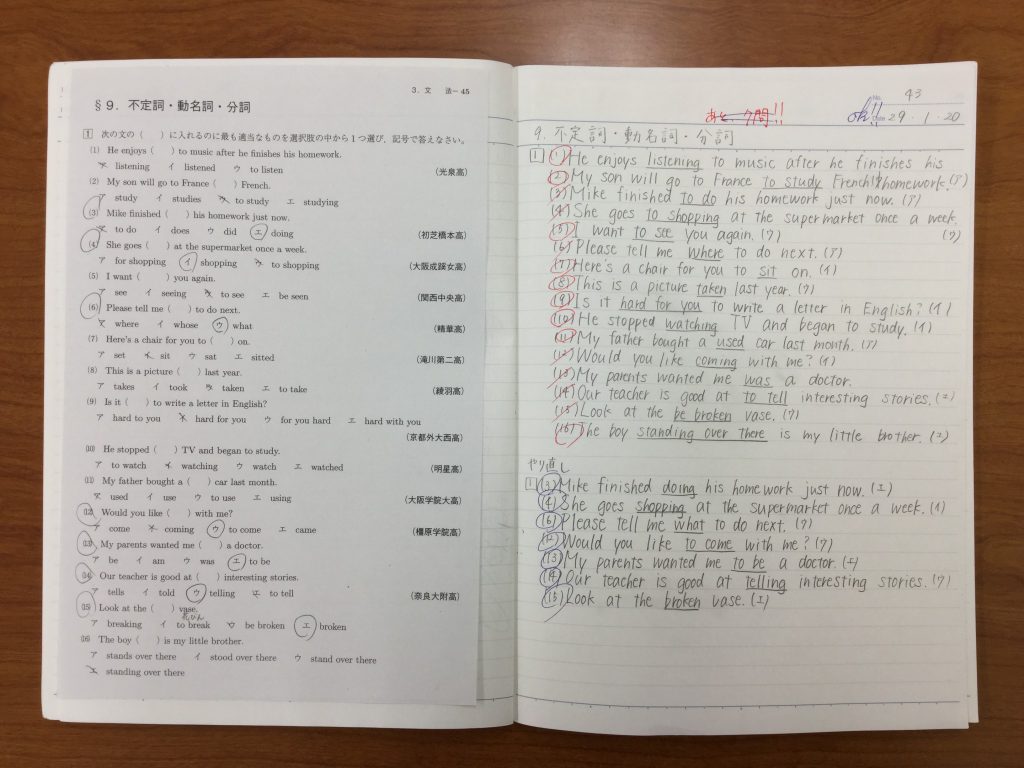 3. 文 法− 45
§9. 不定詞・動名詞・分詞
1 次の文の( )に入れるのに最も適当なものを選択肢の中から1つ選び, 記号で答えなさい。
(1) He enjoys ( ) to music after he finishes his homework.
ア listening イ listened ウ to listen (光泉高)
(2) My son will go to France ( ) French.
ア study イ studies ウ to study エ studying
(3) Mike finished ( ) his homework just now.
ア to do イ does ウ did エ doing (初芝橋本高)
(4) She goes ( ) at the supermarket once a week.
ア for shopping イ shopping ウ to shopping (大阪成蹊女高)
(5) I want ( ) you again.
ア see イ seeing ウ to see エ be seen (関西中央高)
(6) Please tell me ( ) to do next.
ア where イ whose ウ what (精華高)
(7) Here's a chair for you to ( ) on.
ア set イ sit ウ sat エ sitted (滝川第二高)
(8) This is a picture ( ) last year.
ア takes イ took ウ taken エ to take (綾羽高)
(9) Is it ( ) to write a letter in English?
ア hard to you イ hard for you ウ for you hard エ hard with you
(京都外大西高)
(10) He stopped ( ) TV and began to study.
ア to watch イ watching ウ watch エ watched (明星高)
(11) My father bought a ( ) car last month.
ア used イ use ウ to use エ using (大阪学院大高)
(12) Would you like ( ) with me?
ア come イ coming ウ to come エ came (橿原学院高)
(13) My parents wanted me ( ) a doctor.
ア be イ am ウ was エ to be
(14) Our teacher is good at ( ) interesting stories.
ア tells イ told ウ telling エ to tell (奈良大附高)
(15) Look at the ( ) vase.
花びん
ア breaking イ to break ウ be broken エ broken
(16) The boy ( ) is my little brother.
ア stands over there イ stood over there ウ stand over there
エ standing over there
43
あと 7問!!
ok!! 29・1・20
9. 不定詞・動名詞・分詞
1 (1) He enjoys listening to music after he finishes his
homework. (ア)
(2) My son will go to France to study French. (ウ)
(3) Mike finished to do his homework just now. (ア)
(4) She goes to shopping at the supermarket once a week.
(ウ)
(5) I want to see you again. (ウ)
(6) Please tell me where to do next. (ア)
(7) Here's a chair for you to sit on. (イ)
(8) This is a picture taken last year. (ウ)
(9) Is it hard for you to write a letter in English? (イ)
(10) He stopped watching TV and began to study. (イ)
(11) My father bought a used car last month. (ア)
(12) Would you like coming with me? (イ)
(13) My parents wanted me was a doctor.
(14) Our teacher is good at to tell interesting stories. (エ)
(15) Look at the be broken vase. (ウ)
(16) The boy standing over there is my little brother. (エ)
やり直し
1 (3) Mike finished doing his homework just now. (エ)
(4) She goes shopping at the supermarket once a week. (イ)
(6) Please tell me what to do next. (ウ)
(12) Would you like to come with me? (ウ)
(13) My parents wanted me to be a doctor. (エ)
(14) Our teacher is good at telling interesting stories. (ウ)
(15) Look at the broken vase. (エ)